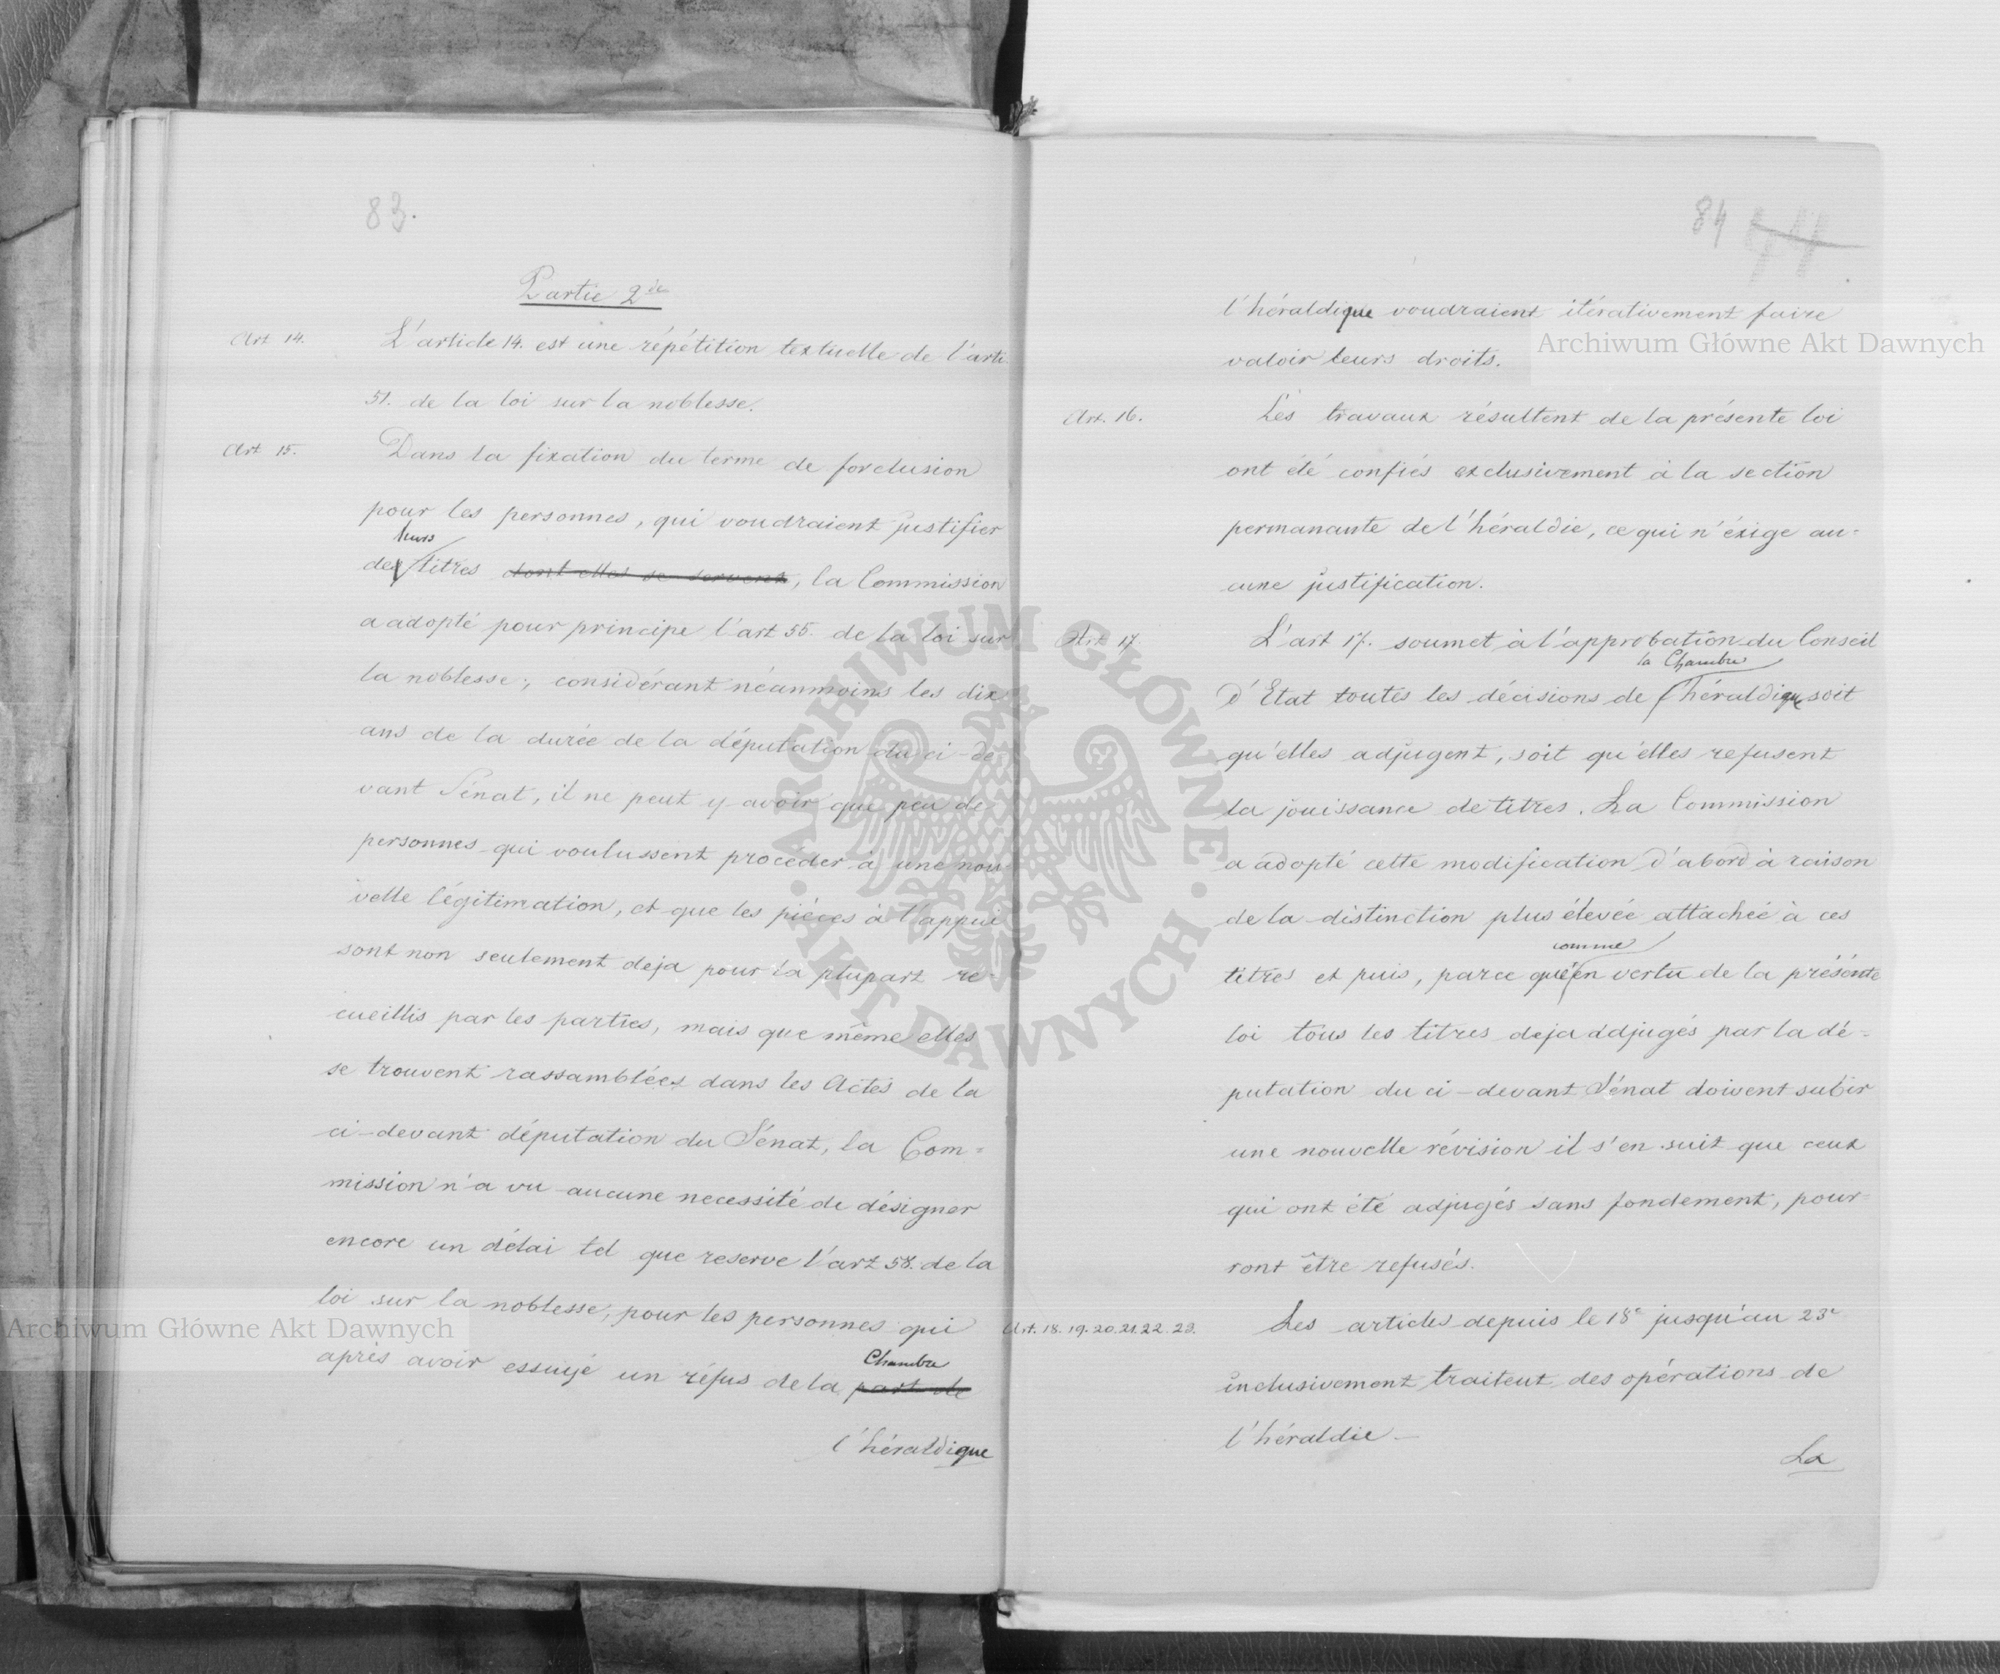 83.
Partie 2de
Art 14.
L'article 14. est une répétition textuelle de l'arti
51. de la loi sur la noblesse.
Art 15.
Dans la fixation du terme de forclusion
pour les personnes, qui voudraient justifier
leurs
des titres dont elles se servent, la Commission
a adopté pour principe l'art 55. de la loi sur
la noblesse; considérant néanmoins les dix
ans de la durée de la députation du ci-de
vant Sénat, il ne peut y avoir que peu de
personnes qui voulussent procéder à une nou
velle légitimation, et que les pièces à l'appui
sont non seulement deja pour la plupart re-
cueillis par les parties, mais que même elles
se trouvent rassamblées dans les Actes de la
ci-devant députation du Sénat, la Com=
mission n'a vu aucune necessité de désigner
encore un délai tel que reserve l'art 58. de la
loi sur la noblesse, pour les personnes qui
Chambre
après avoir essuyé un réfus de la part de
l'héraldique
84
l'héraldique voudraient itérativement faire
valoir leurs droits.
Art. 16.
Les travaux résultent de la présente loi
ont été confiés exclusivement à la section
permanante de l'héraldie, ce qui n'éxige au-
cune justification.
Art 17
L'art 17. soumet à l'approbation du Conseil
la Chambre
d'Etat toutes les décisions de l'héraldique soit
qu'elles adjugent, soit qu'elles refusent
la jouissance de titres. La Commission
a adopté cette modification d'abord à raison
de la distinction plus élevée attachée à ces
comme
titres et puis, parce qu'en vertu de la présente
loi tous les titres deja adjugés par la dé-
putation du ci-devant Sénat doivent subir
une nouvelle révision il s'en suit que ceux
qui ont été adjugés sans fondement, pour=
ront être refusés.
Art. 18. 19. 20. 21. 22. 23.
Les articles depuis le 18e jusqu'au 23e
inclusivement traitent des opérations de
l'héraldie –
La
Archiwum Główne Akt Dawnych
Archiwum Główne Akt Dawnych
ARCHIWUM GŁÓWNE AKT DAWNYCH